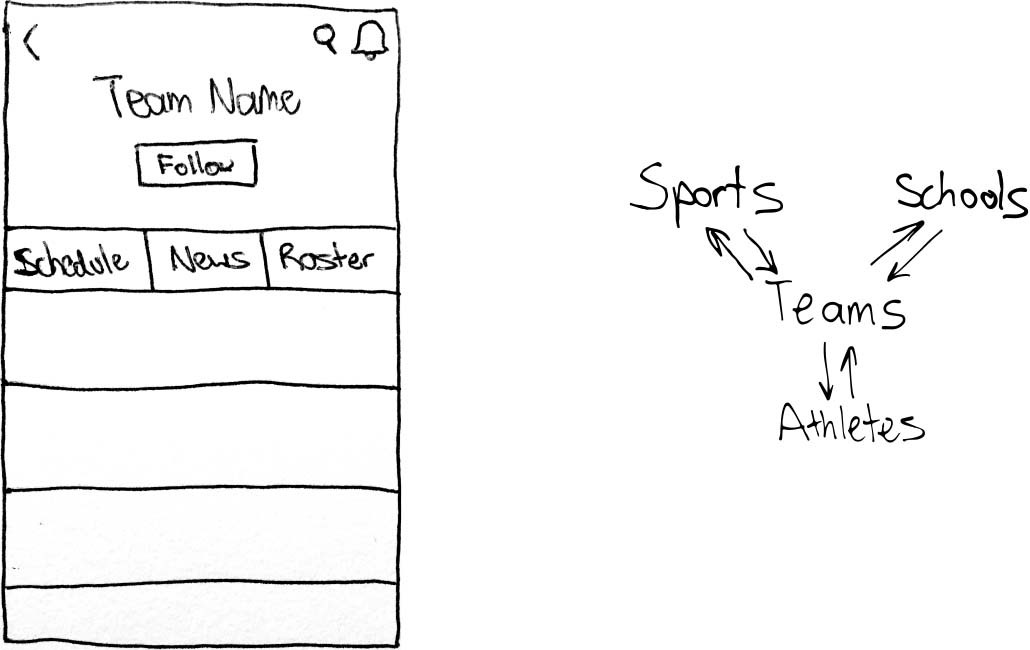 Team Name
Follow
Schedule News Roster
Sports Schools
Teams
Athletes